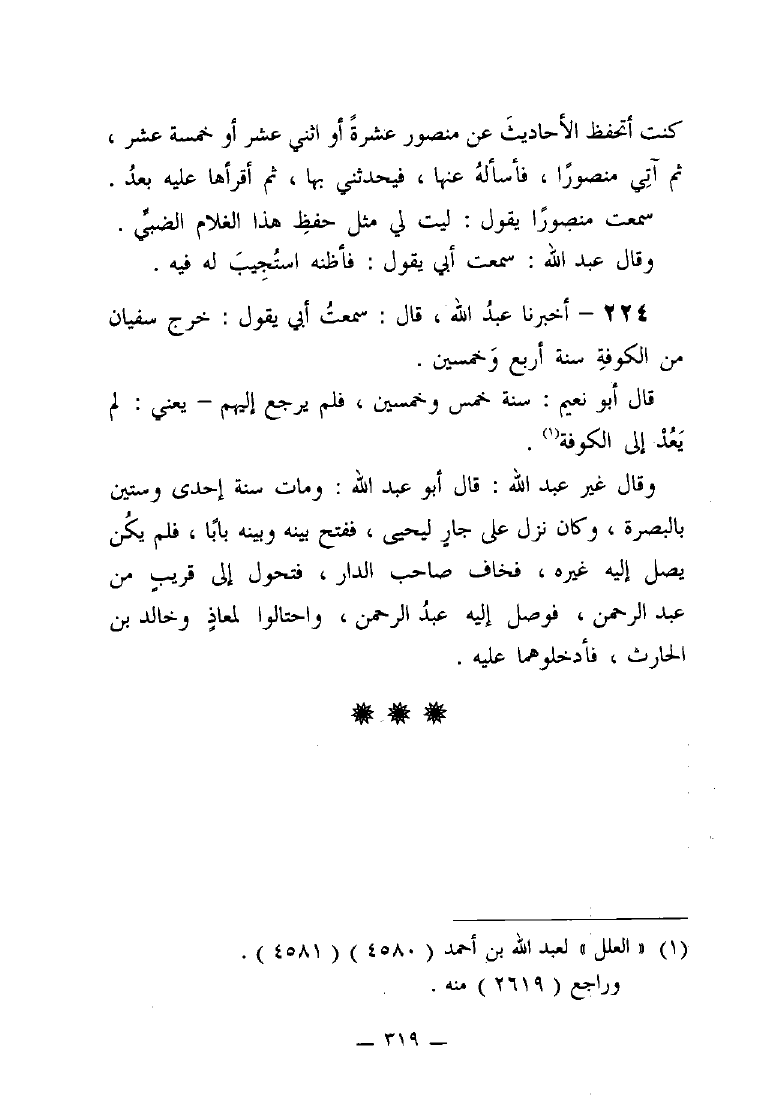 كنت أتحفظ الأحاديثَ عن منصور عشرةً أو اثني عشر أو خمسة عشر ،
ثم آتِي منصورًا ، فأسألهُ عنها ، فيحدثني بها ، ثم أقرأها عليه بعدُ .
سمعت منصورًا يقول : ليت لي مثل حفظِ هذا الغلام الضبيِّ .
وقال عبد الله : سمعت أبي يقول : فأظنه استُجِيبَ له فيه .
٢٢٤ – أخبرنا عبدُ الله ، قال : سمعتُ أبي يقول : خرج سفيان
من الكوفةِ سنة أربع وَخمسين .
قال أبو نعيم : سنة خمس وخمسين ، فلم يرجع إليهم – يعني : لم
يَعُدْ إلى الكوفة(١) .
وقال غير عبد الله : قال أبو عبد الله : ومات سنة إحدى وستين
بالبصرة ، وكان نزل على جارٍ ليحيى ، ففتح بينه وبينه بابًا ، فلم يكُن
يصل إليه غيره ، فخاف صاحب الدار ، فتحول إلى قريبٍ من
عبد الرحمن ، فوصل إليه عبدُ الرحمن ، واحتالوا لمعاذٍ وخالد بن
الحارث ، فأدخلوهما عليه .
(١) « العلل » لعبد الله بن أحمد ( ٤٥٨٠ ) ( ٤٥٨١ ) .
وراجع ( ٢٦١٩ ) منه .
– ٣١٩ –